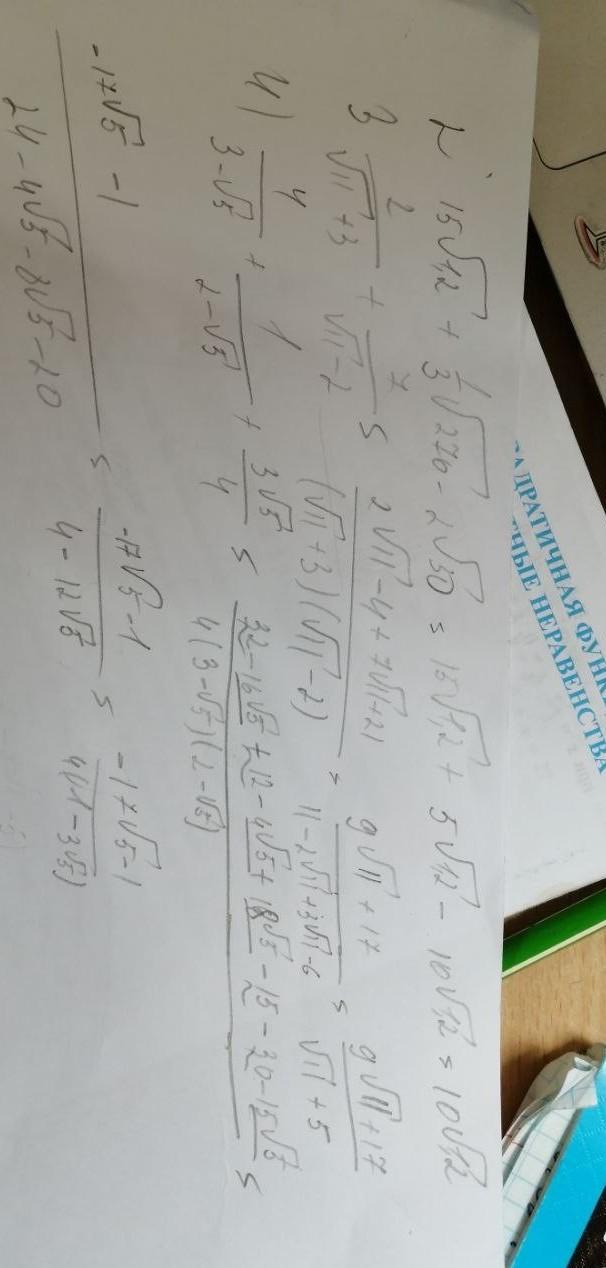 2. 15√12 + 1/3 √270 - 2√30 = 15√12 + 5√12 - 10√12 = 10√12
3 2/(√11+3) + 7/(√11-2) = (2√11-4+7√11+21)/((√11+3)(√11-2)) = (9√11+17)/(11-2√11+3√11-6) = (9√11+17)/(√11+5)
4) 4/(3-√5) + 1/(2-√5) + 3√5/4 = (32-16√5+12-4√5+18√5-15-30-15√5)/(4(3-√5)(2-√5)) =
(-17√5-1)/(24-4√5-8√5-20) = (-17√5-1)/(4-12√5) = (-17√5-1)/(4(1-3√5))
АДРАТИЧНАЯ ФУНК
НЫЕ НЕРАВЕНСТВА